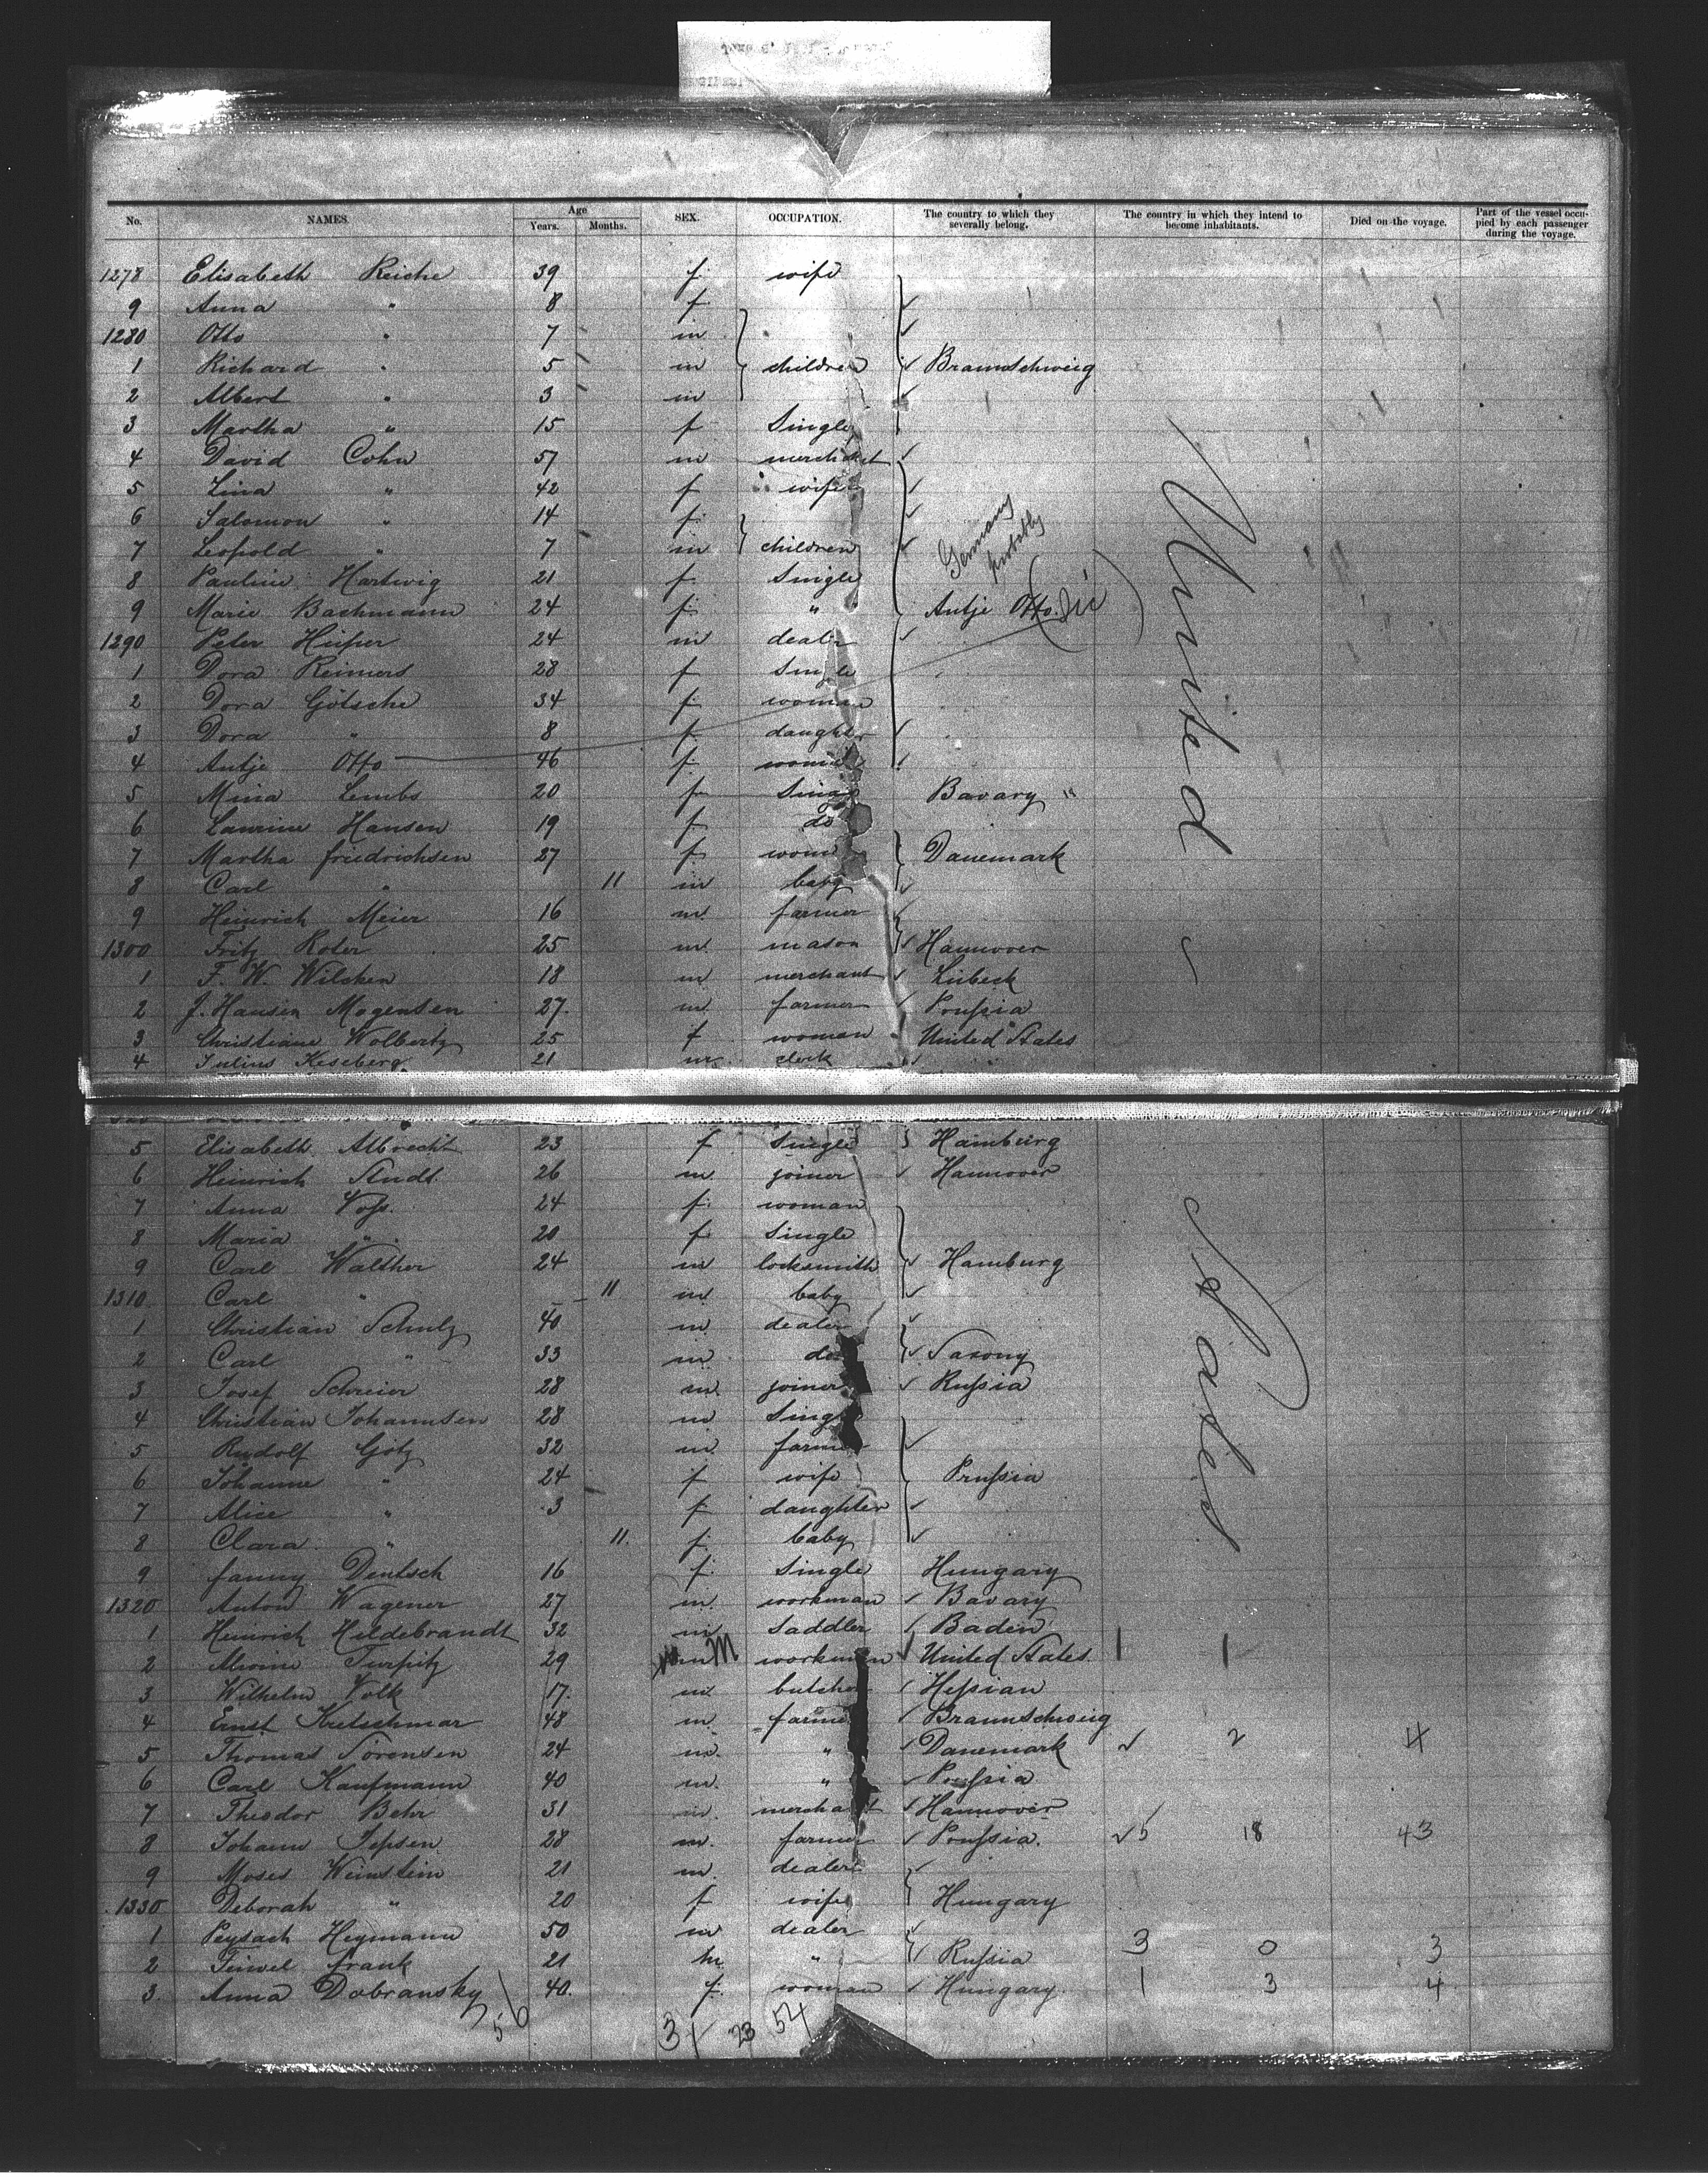 No. NAMES. Age Years. Months. SEX. OCCUPATION. The country to which they severally belong. The country in which they intend to become inhabitants. Died on the voyage. Part of the vessel occupied by each passenger during the voyage.
1278 Elisabeth Reiche 39 f. wife
9 Anna " 8 f.
1280 Otto " 7 m
1 Richard " 5 m children Braunschweig
2 Albert " 3 m
3 Martha " 15 f Single
4 David Cohn 57 m merchant
5 Lina " 42 f wife
6 Salomon " 14 f.
7 Leopold " 7 m children
8 Pauline Hartwig 21 f. Single
9 Marie Bachmann 24 f. " Antje Otto (sic)
Germany probably
1290 Peter 24 m dealer
1 Dora Reimers 28 f Single
2 Dora Götsche 34 f. woman
3 Dora " 8 f. daughter
4 Antje Otto 46 f. woman
5 Mina Lembs 20 f Single Bavary "
6 Laurine Hansen 19 f do
7 Martha friedrichsen 27 f woman Danemark
8 Carl " 11 m baby
9 Heinrich Meier 16 m. farmer
1300 Fritz Roter 25 m. mason Hannover
1 F. W. Wilcken 18 m merchant Lübeck
2 J. Hansen Mogensen 27. m. farmer Preußia
3 Christiane Wolbertz 25 f woman United States
4 Julius Keseberg. 21 m. clerk "
United
5 Elisabeth Albrecht 23 f Single Hamburg
6 Heinrich Andt. 26 m. joiner Hannover
7 Anna Voß. 24 f. woman
8 Maria " 20 f. Single
9 Carl Walther 24 m locksmith Hamburg
1310 Carl " 11 m. baby
1 Christian Schulz 40 m dealer
2 Carl " 33 m do Saxony
3 Josef Schreier 28 m. joiner Rußia
4 Christian Johannsen 28 m Single
5 Rudolf Götz 32 m. farmer
6 Johanne " 24 f wife Prußia
7 Alice " 3 f. daughter
8 Clara " 11. f. baby
9 fanny Deutsch 16 f. Single Hungary
1320 Anton Wagener 27 m. workman Bavary
1 Heinrich Hildebrandt 32 m Saddler Baden
2 Turpitz 29 m M workman United States 1 1
3 Wilhelm Volk 17. m. butcher Heßian
4 Ernst Kretschmar 48 m. farmer Braunschweig
5 Thomas Sörensen 24 m. " Danemark 2 4
6 Carl Kaufmann 40 m. " Preußia
7 Theodor Behr 31 m. merchant Hannover
8 Johann Jepsen 28 m. farmer Preußia. 5 18 43
9 Moses Weinstein 21 m. dealer
1330 Deborah " 20 f wife Hungary
1 Peysach Heymann 50 m dealer
2 Feiwel frank 21 m. " Rußia 3 0 3
3 Anna Dobransky 40. f. woman Hungary. 1 3 4
States
56 31 23 54